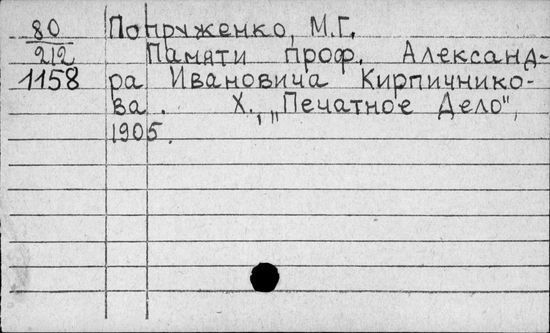 80 Попруженко, М.Г.
212 Памяти проф. Александ-
1158 ра Ивановича Кирпичнико-
ва. Х., "Печатное Дело",
1905.